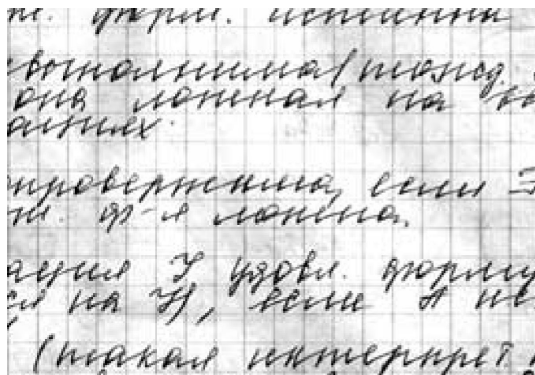 т. форм. истинна
выполнима (тожд.
она ложная на вс
аниях.
опровержима, если Э
т. ф-я ложна.
ация У удовл. форму
ся на У), если А не
(такая интерпрет